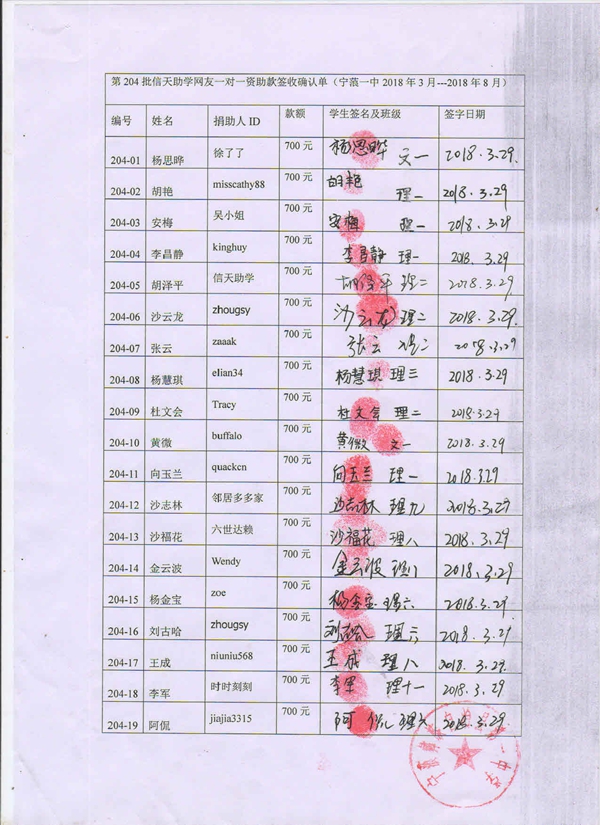 第 204 批信天助学网友一对一资助款签收确认单（宁蒗一中 2018 年 3 月---2018 年 8 月）
编号 姓名 捐助人 ID 款额 学生签名及班级 签字日期
204-01 杨思晔 徐了了 700 元 杨思晔 文一 2018.3.29.
204-02 胡艳 misscathy88 700 元 胡艳 理一 2018.3.29
204-03 安梅 吴小姐 700 元 安梅 理一 2018.3.29
204-04 李昌静 kinghuy 700 元 李昌静 理一 2018.3.29
204-05 胡泽平 信天助学 700 元 胡泽平 理二 2018.3.29
204-06 沙云龙 zhougsy 700 元 沙云龙 理二 2018.3.29
204-07 张云 zaaak 700 元 张云 理二 2018.3.29
204-08 杨慧琪 elian34 700 元 杨慧琪 理三 2018.3.29
204-09 杜文会 Tracy 700 元 杜文会 理二 2018.3.29
204-10 黄微 buffalo 700 元 黄微 文一 2018.3.29
204-11 向玉兰 quackcn 700 元 向玉兰 理一 2018.3.29
204-12 沙志林 邻居多多家 700 元 沙志林 理九 2018.3.29
204-13 沙福花 六世达赖 700 元 沙福花 理八 2018.3.29
204-14 金云波 Wendy 700 元 金云波 理八 2018.3.29
204-15 杨金宝 zoe 700 元 杨金宝 理六 2018.3.29
204-16 刘古哈 zhougsy 700 元 刘古哈 理六 2018.3.29
204-17 王成 niuniu568 700 元 王成 理八 2018.3.29.
204-18 李军 时时刻刻 700 元 李军 理十一 2018.3.29
204-19 阿侃 jiajia3315 700 元 阿侃 理六 2018.3.29